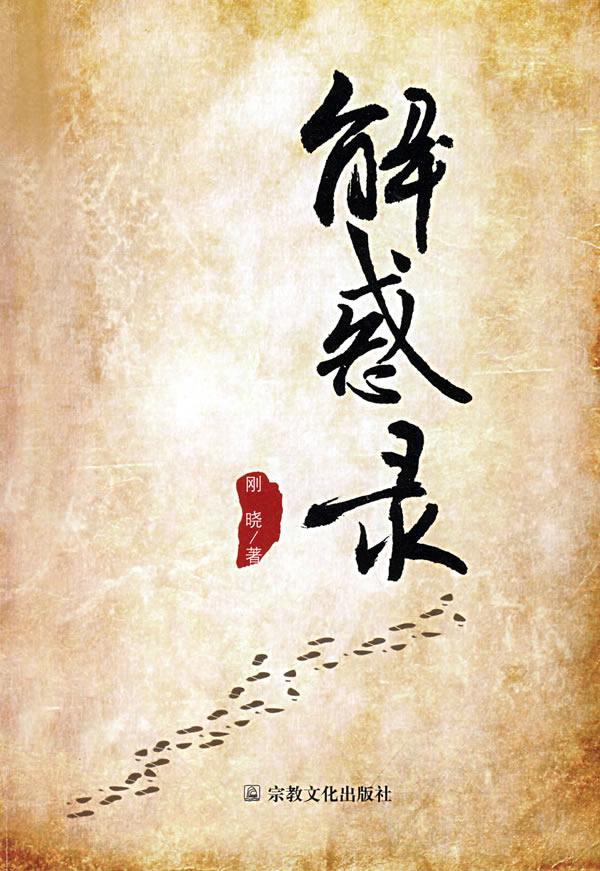 解惑录
刚晓/著
宗教文化出版社